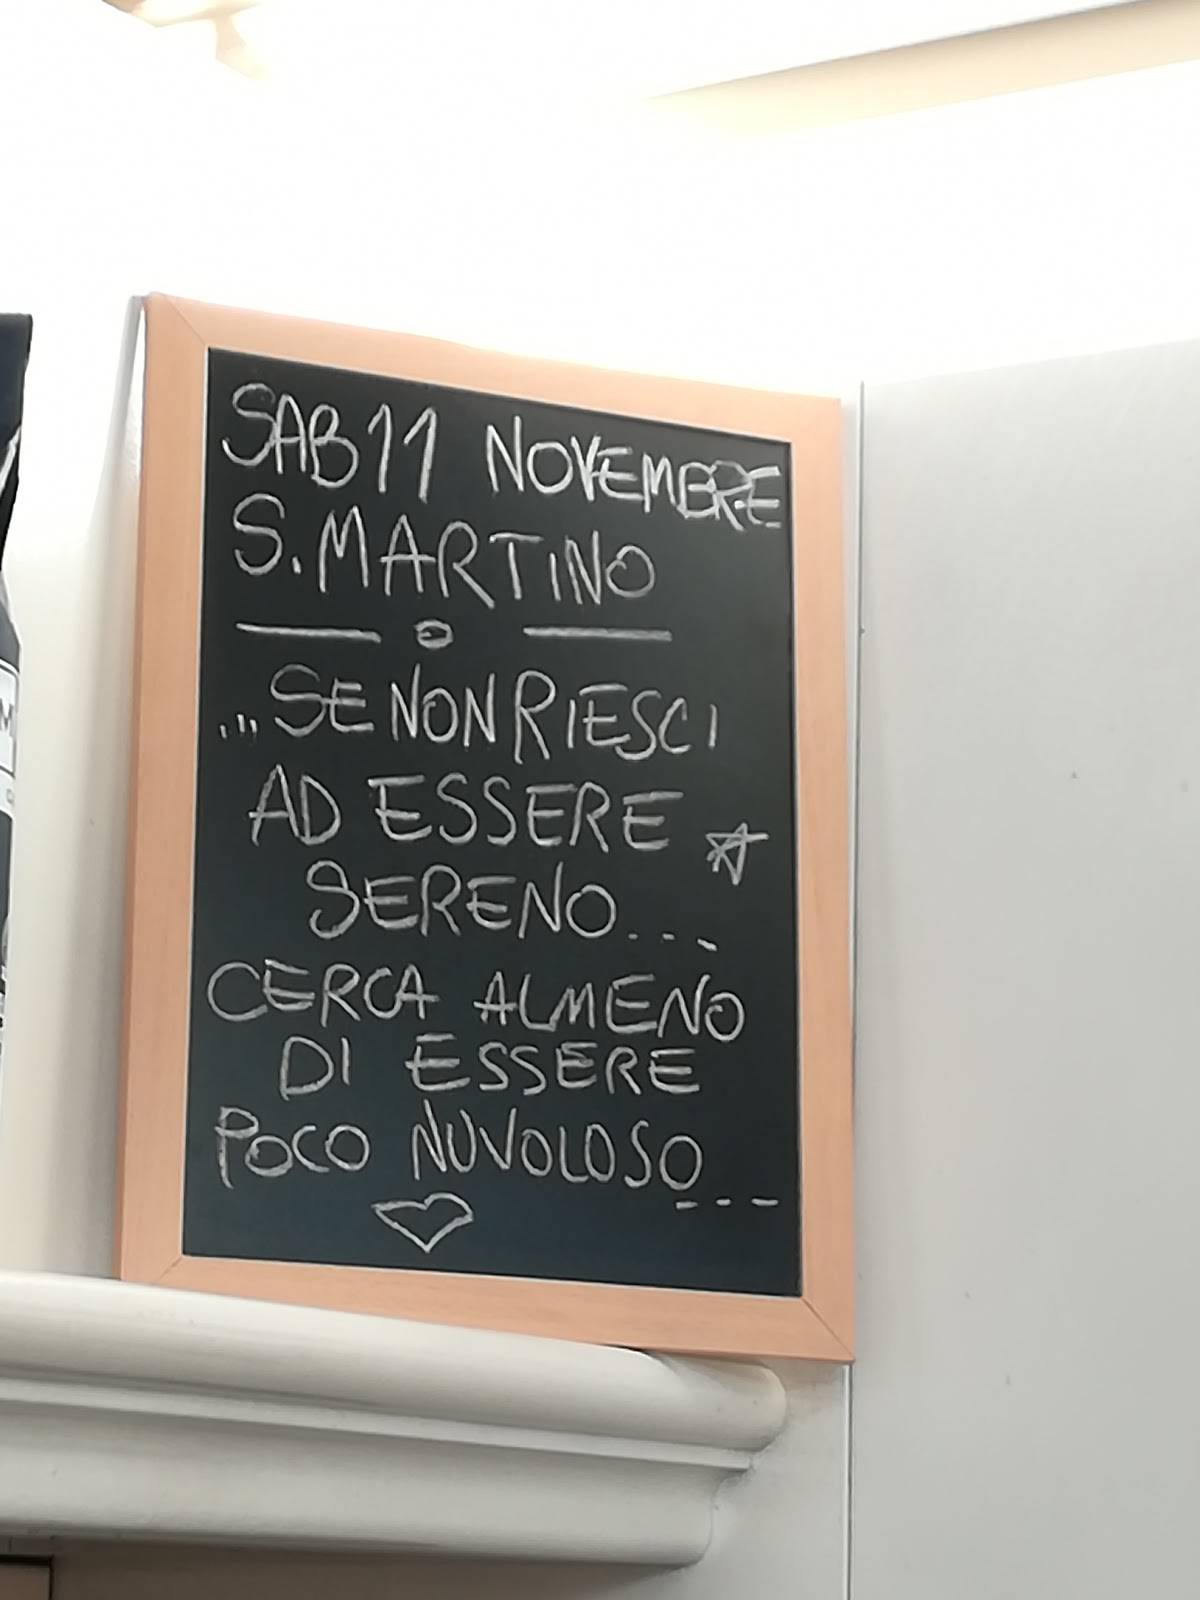 SAB 11 NOVEMBRE
S. MARTINO
... SE NON RIESCI
AD ESSERE
SERENO...
CERCA ALMENO
DI ESSERE
POCO NUVOLOSO...